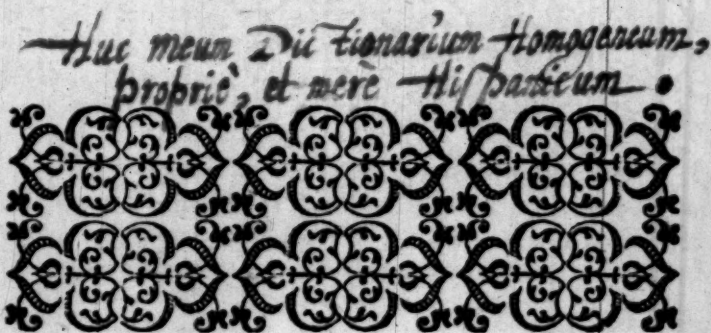 Huc meum Dictionarium Homogeneum,
propriè, et merè Hispanicum.